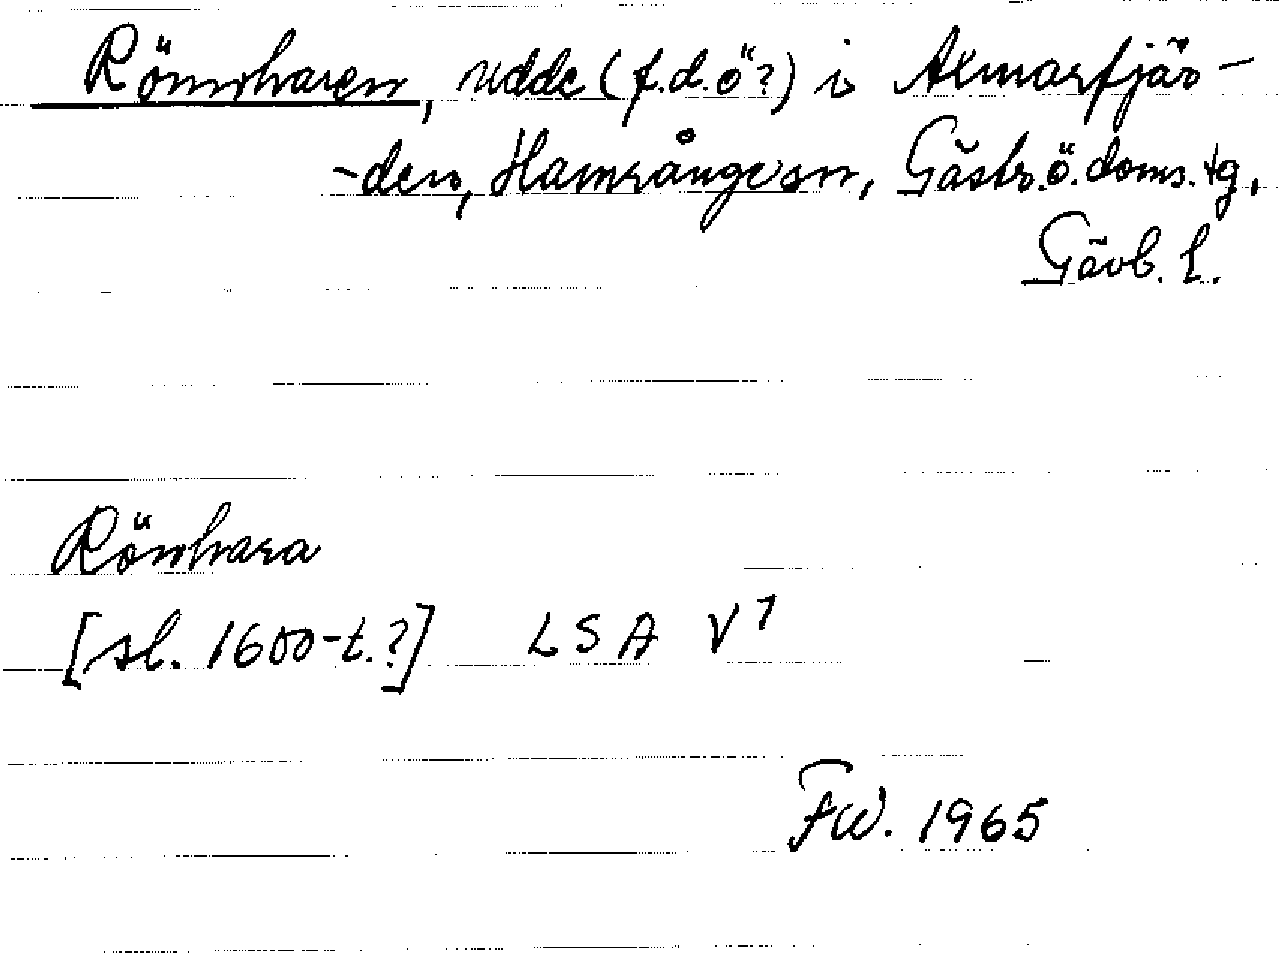 Rönnharen, udde (f.d. ö?) i Axmarfjär-
-den, Hamrånge sn, Gästr. ö. doms. tg,
Gävb. l.
Rönhara
[sl. 1600-t.?] LSA V 7
FW. 1965